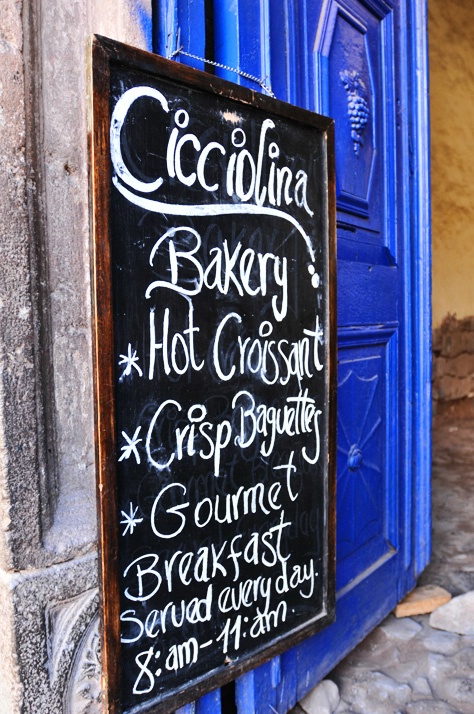 Cicciolina
Bakery
* Hot Croissant
* Crisp Baguettes
* Gourmet
Breakfast
Served every day.
8:am - 11:am.